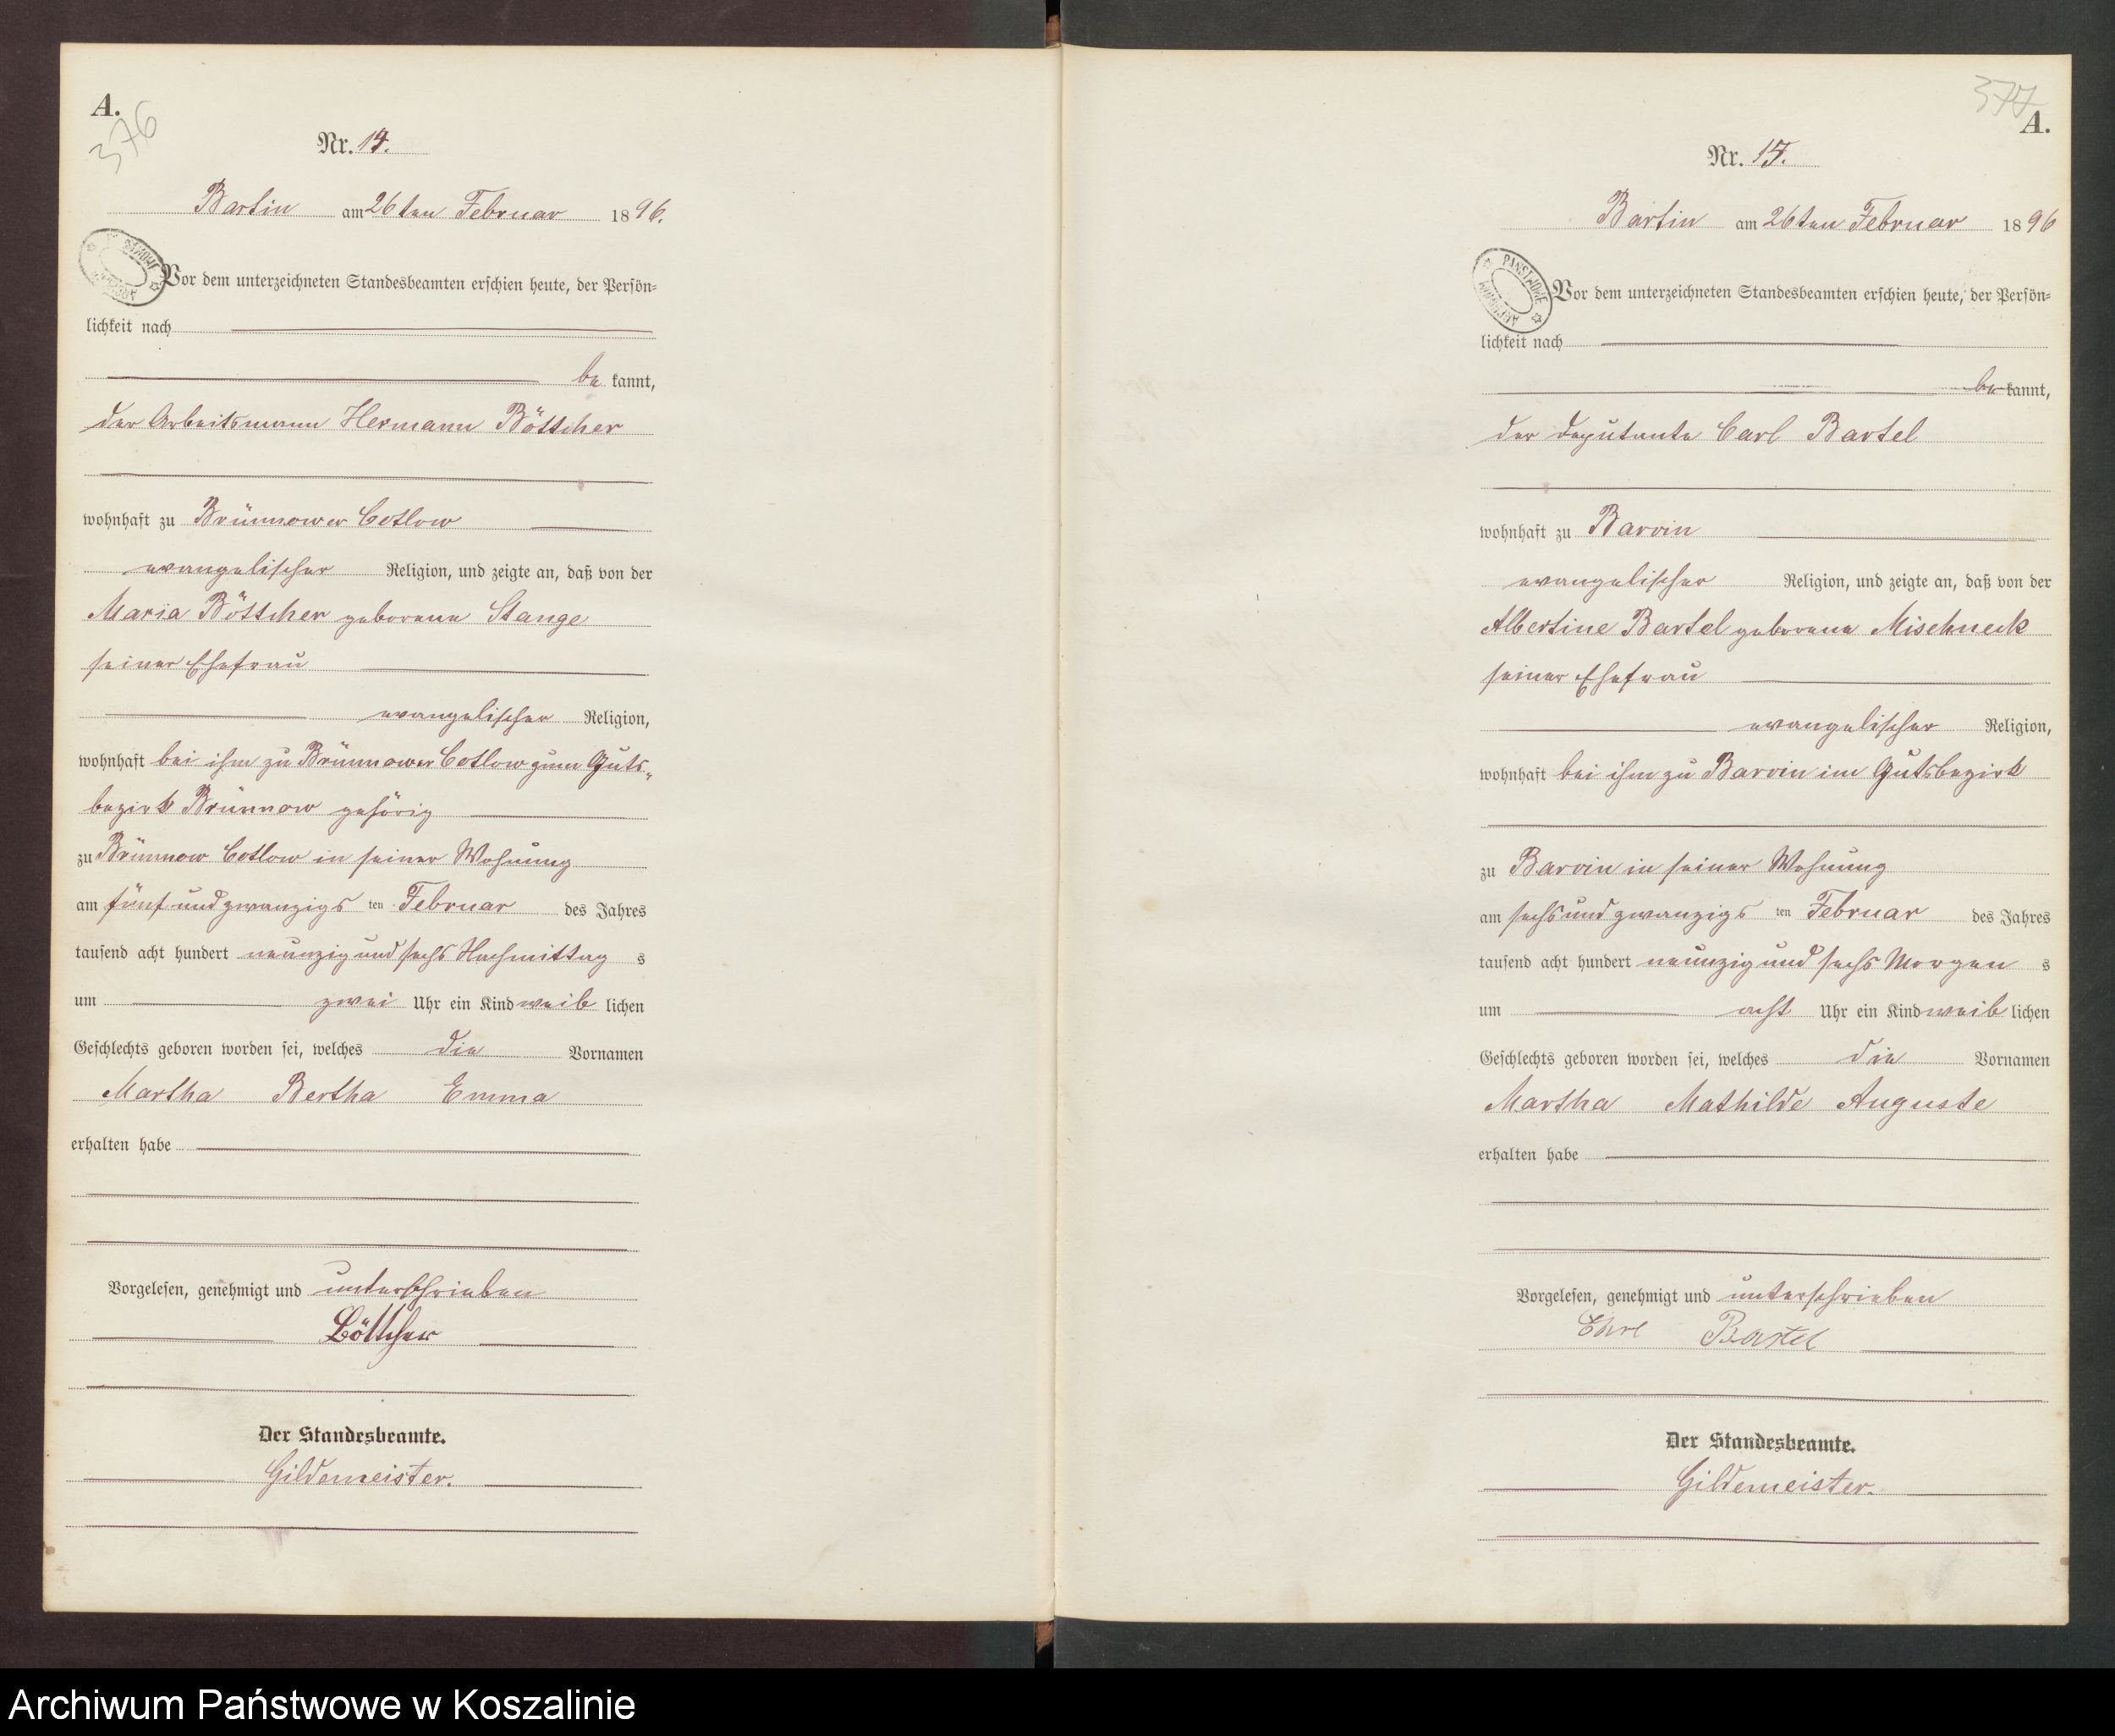 A.
376
Nr. 14.
Bartin am 26ten Februar 1896.
Vor dem unterzeichneten Standesbeamten erschien heute, der Persön=
lichkeit nach
be kannt,
der Arbeitsmann Hermann Böttcher
wohnhaft zu Brünnower Cotlow
evangelischer Religion, und zeigte an, daß von der
Maria Böttcher geborene Stange
seiner Ehefrau
evangelischer Religion,
wohnhaft bei ihm zu Brünnower Cotlow zum Guts„
bezirk Brünnow gehörig
zu Brünnow Cotlow in seiner Wohnung
am fünf und zwanzigs ten Februar des Jahres
tausend acht hundert neunzig und sechs Nachmittag s
um zwei Uhr ein Kind weib lichen
Geschlechts geboren worden sei, welches die Vornamen
Martha Bertha Emma
erhalten habe
Vorgelesen, genehmigt und unterschrieben
Böttcher
Der Standesbeamte.
Gildemeister.
377
A.
Nr. 15.
Bartin am 26ten Februar 1896
PANSTWOWE ARCHIWUM
Vor dem unterzeichneten Standesbeamten erschien heute, der Persön=
lichkeit nach
be kannt,
der Deputante Carl Bartel
wohnhaft zu Barvin
evangelischer Religion, und zeigte an, daß von der
Albertine Bartel geborene Mischneck
seiner Ehefrau
evangelischer Religion,
wohnhaft bei ihm zu Barvin im Gutsbezirk
zu Barvin in seiner Wohnung
am sechs und zwanzigs ten Februar des Jahres
tausend acht hundert neunzig und sechs Morgen s
um acht Uhr ein Kind weib lichen
Geschlechts geboren worden sei, welches die Vornamen
Martha Mathilde Auguste
erhalten habe
Vorgelesen, genehmigt und unterschrieben
Bartel
Der Standesbeamte.
Gildemeister.
Archiwum Państwowe w Koszalinie